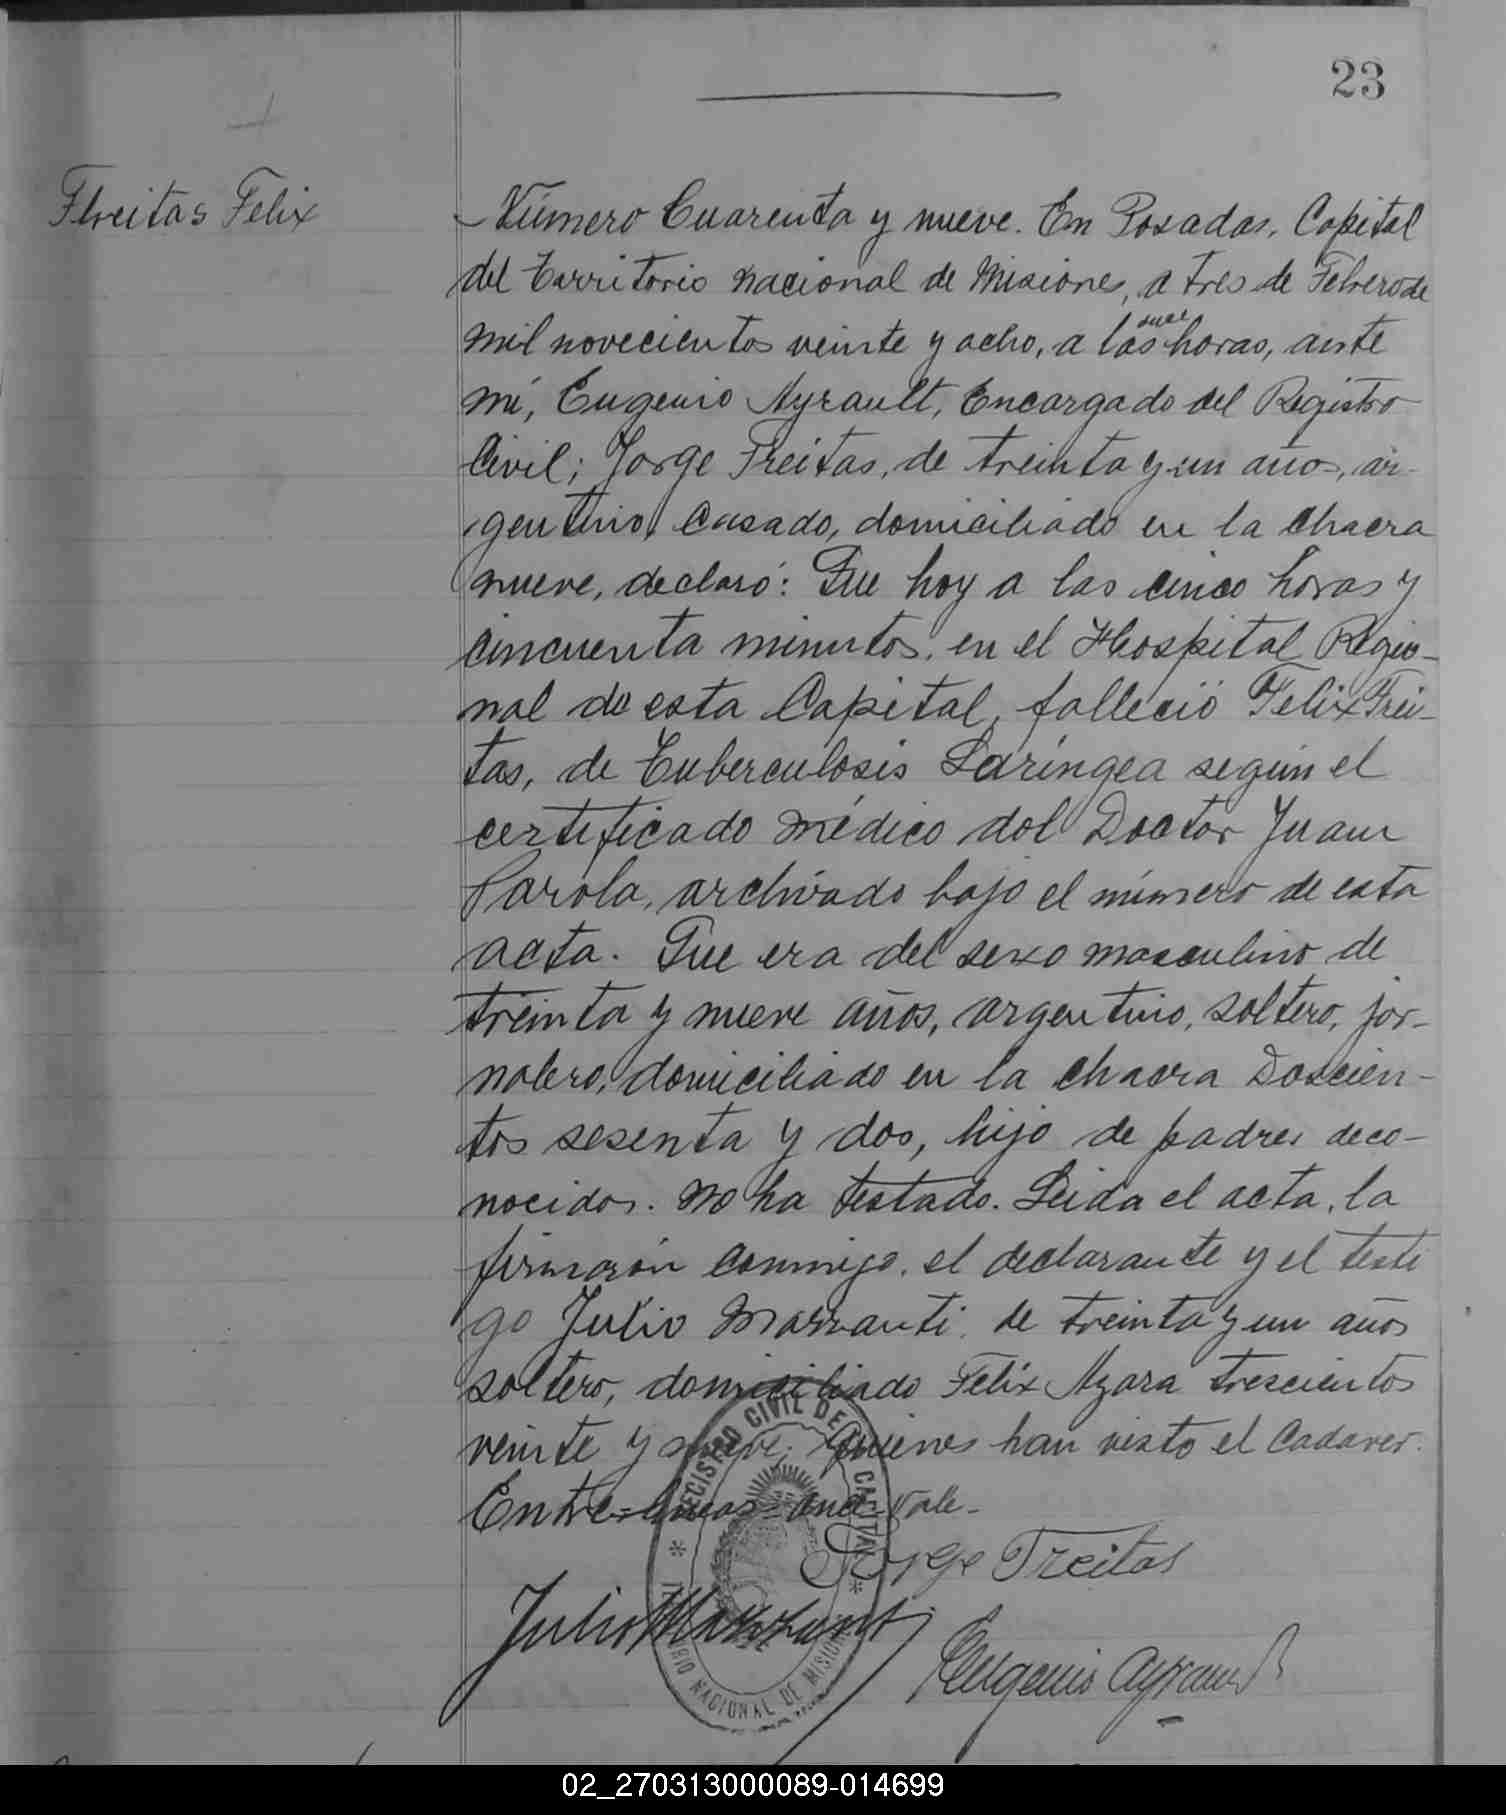 23
Freitas Felix
Número Cuarenta y nueve. En Posadas, Capital
del Territorio Nacional de Misiones, a tres de Febrero de
mil novecientos veinte y ocho, a las once horas, ante
mí, Eugenio Ayrault, Encargado del Registro
Civil; Jorge Freitas, de treinta y un años, ar-
gentino, casado, domiciliado en la chacra
nueve, declaró: Que hoy a las cinco horas y
cincuenta minutos, en el Hospital Regio-
nal de esta Capital, falleció Felix Frei-
tas, de Tuberculosis Laríngea según el
certificado médico del Doctor Juan
Parola, archivado bajo el número de esta
acta. Que era del sexo masculino de
treinta y nueve años, argentino, soltero, jor-
nalero, domiciliado en la chacra Doscien-
tos sesenta y dos, hijo de padres deco-
nocidos. No ha testado. Leida el acta, la
firmaron conmigo, el declarante y el testi
go Julio Marzanti, de treinta y un años
soltero, domiciliado Felix Azara trescientos
veinte y nueve, quienes han visto el cadaver.
Entre-lineas-once-Vale-
Jorge Freitas
Julio Marzanti
Eugenio Ayrault
REGISTRO CIVIL DE LA CAPITAL
TERRITORIO NACIONAL DE MISIONES
02_270313000089-014699